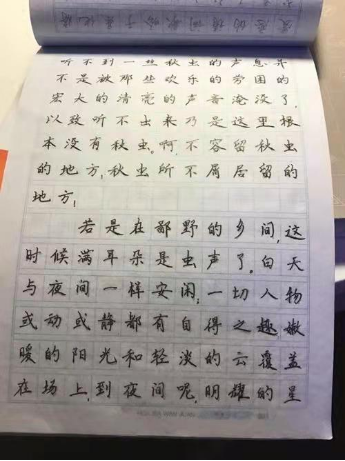 听不到一丝秋虫的声息并
不是被那些欢乐的劳困的
宏大的清亮的声音淹没了,
以致听不出来乃是这里根
本没有秋虫。啊,不容留秋虫
的地方!秋虫所不屑居留的
地方!
若是在鄙野的乡间,这
时候满耳朵是虫声了。白天
与夜间一样安闲;一切人物
或动或静都有自得之趣,嫩
暖的阳光和轻淡的云覆盖
在场上,到夜间呢,明耀的星